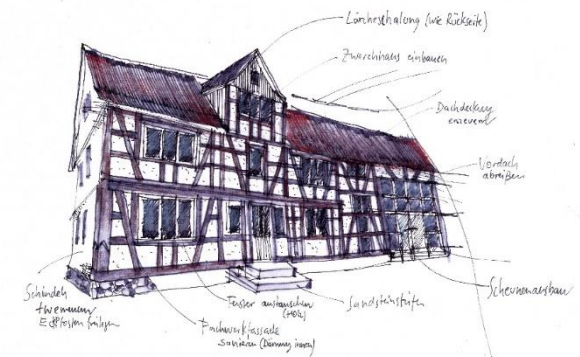 Lärcheschalung (wie Rückseite)
Zwerchhaus einbauen
Dachdeckung
erneuern
Vordach
abreißen
Scheunenausbau
Sandsteinstufen
Fenster austauschen
(Holz)
Fachwerkfassade
sanieren (Dämmung innen)
Schindeln